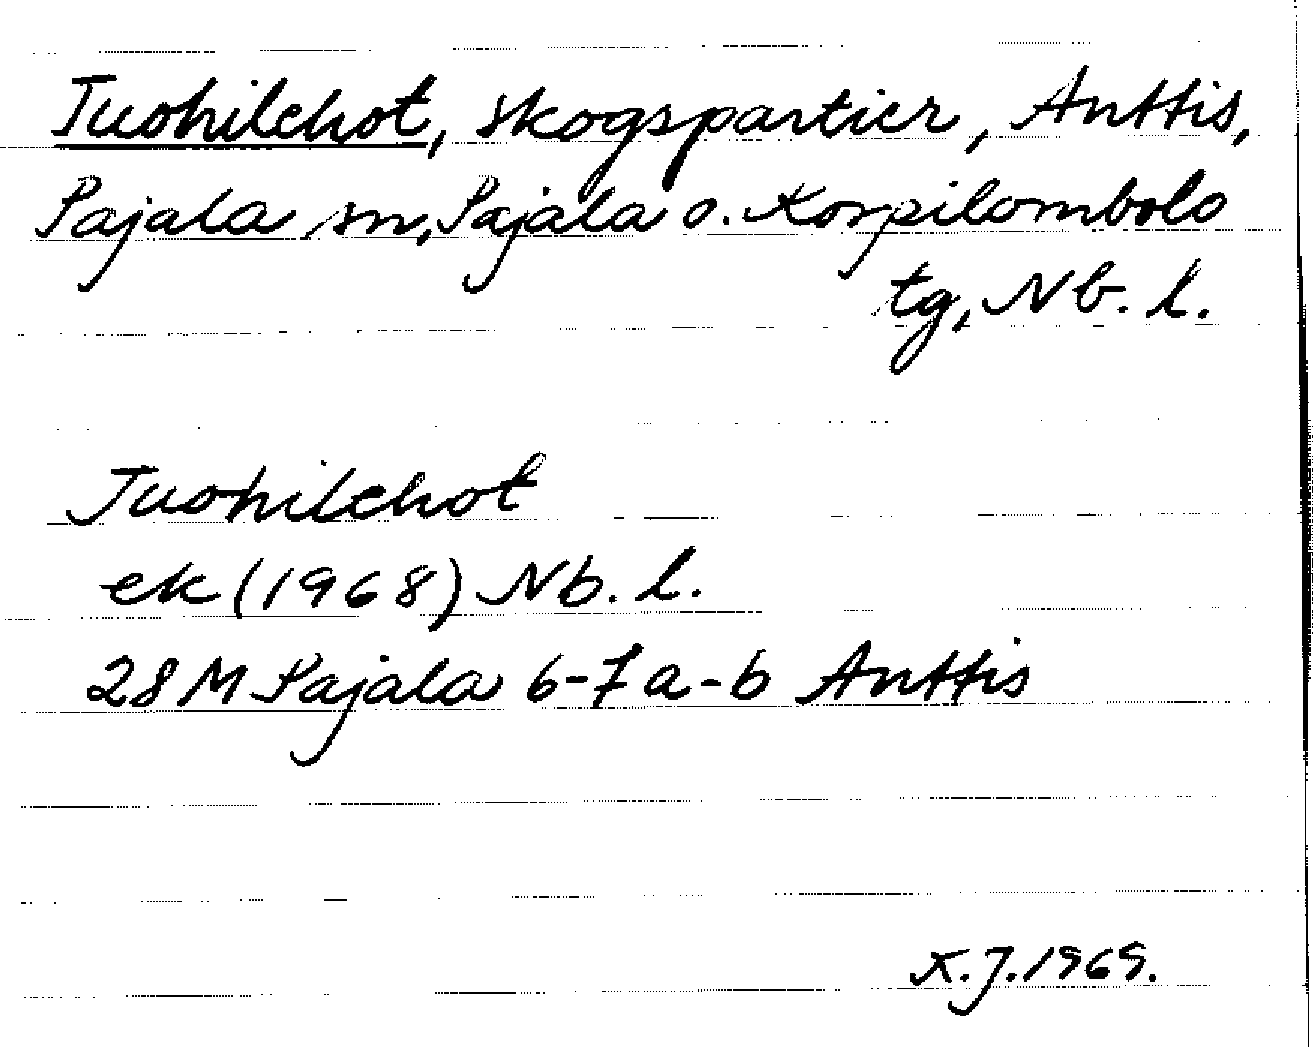 Tuohilehot, skogspartier, Anttis,
Pajala sn, Pajala o. Korpilombolo
tg, Nb. l.
Tuohilehot
ek (1968) Nb. l.
28 M Pajala 6-7 a-b Anttis
K. J. 1969.